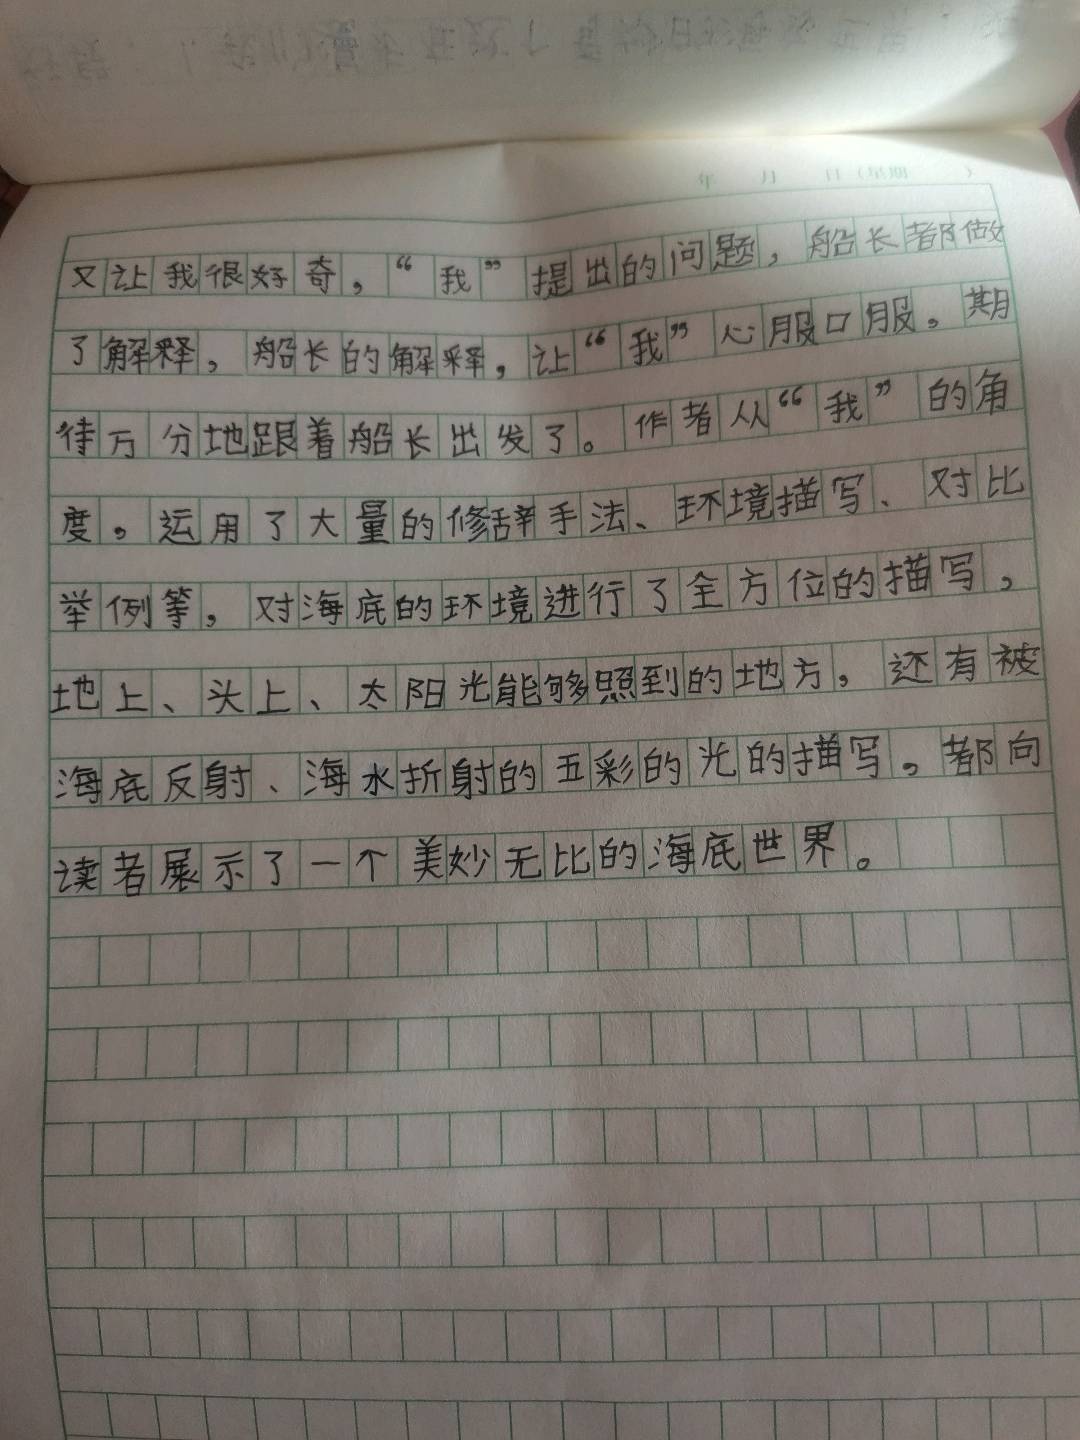 年 月 日（星期 ）
又让我很好奇，“我”提出的问题，船长都做
了解释，船长的解释，让“我”心服口服。期
待万分地跟着船长出发了。作者从“我”的角
度。运用了大量的修辞手法、环境描写、对比
举例等，对海底的环境进行了全方位的描写，
地上、头上、太阳光能够照到的地方，还有被
海底反射、海水折射的五彩的光的描写。都向
读者展示了一个美妙无比的海底世界。